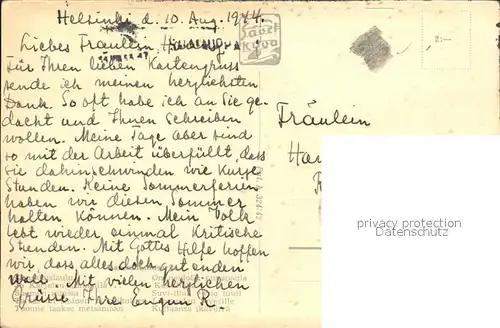 Helsinki d. 10. Aug. 1944.
Liebes Fräulein
Für Ihren lieben Kartengruss
sende ich meinen herzlichsten
Dank. So oft habe ich an Sie ge-
dacht und Ihnen schreiben
wollen. Meine Tage aber sind
so mit der Arbeit überfüllt, dass
sie dahinschwinden wie kurze
Stunden. Keine Sommerferien
haben wir diesen Sommer
halten können. Mein Volk
lebt wieder einmal kritische
Stunden. Mit Gottes Hilfe hoffen
wir, dass alles doch gut enden
will. Mit vielen herzlichen
Grüsse Ihre R.
Fräulein
privacy protection
www.oldthing.de